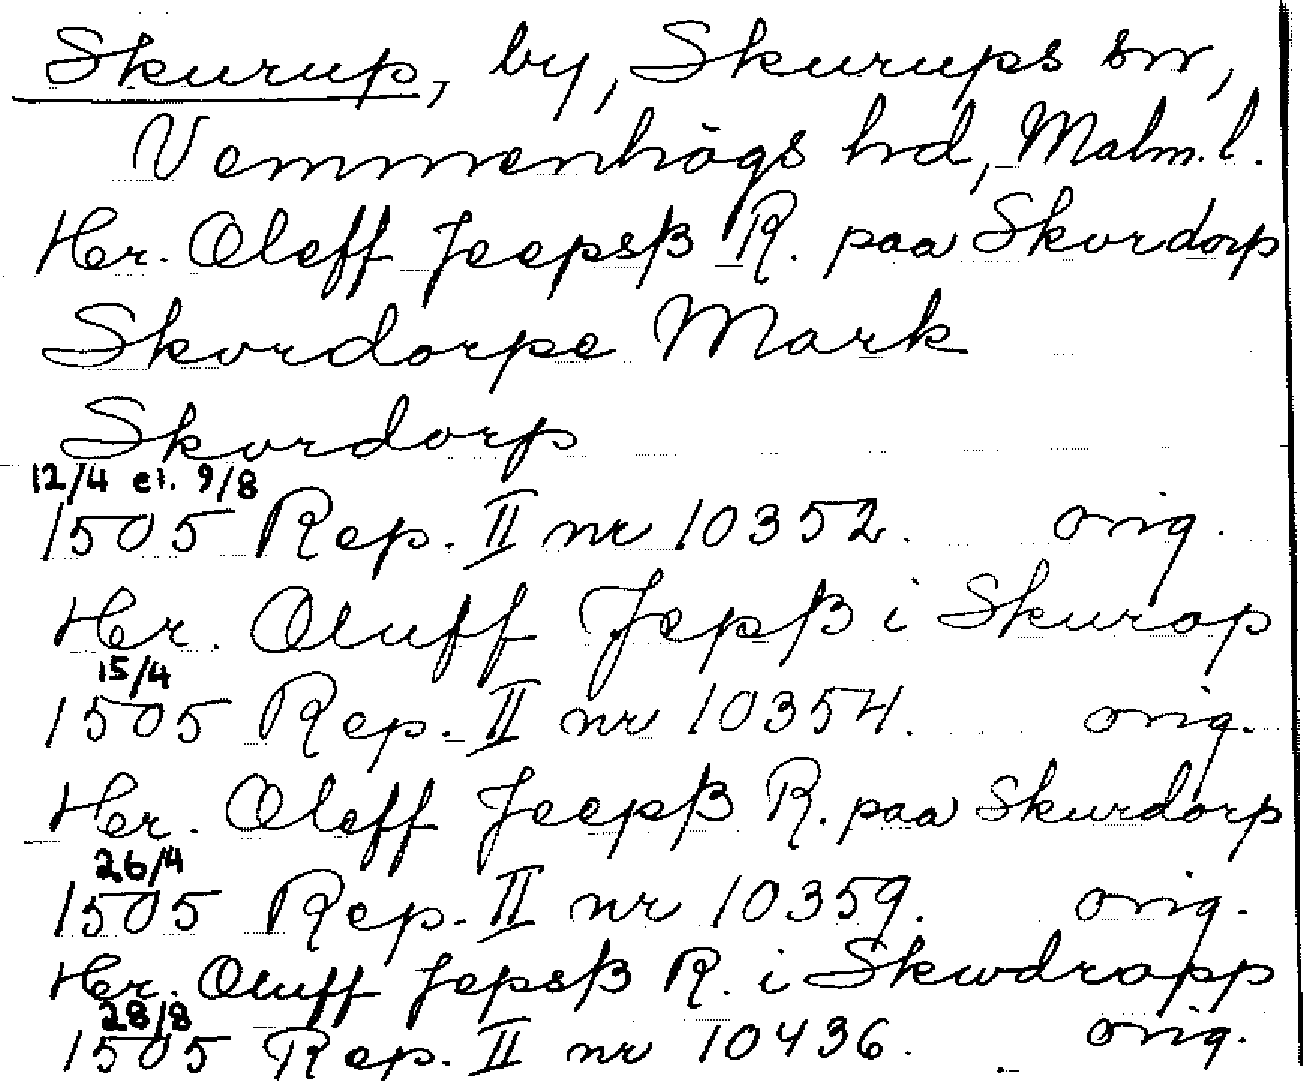 Skurup, by, Skurups sn,
Vemmenhögs hd, Malm. l.
Her. Oleff Jeepsß R. paa Skvrdorp
Skvrdorpe Mark
Skvrdorp
12/4 el. 9/8
1505 Rep. II nr 10352. orig.
Her. Oluff Jepß i Skurop
15/4
1505 Rep. II nr 10354. orig.
Her. Oleff Jeepß R. paa Skurdorp
26/4
1505 Rep. II nr 10359. orig.
Her. Oluff Jepsß R. i Skwdropp
28/8
1505 Rep. II nr 10436. orig.